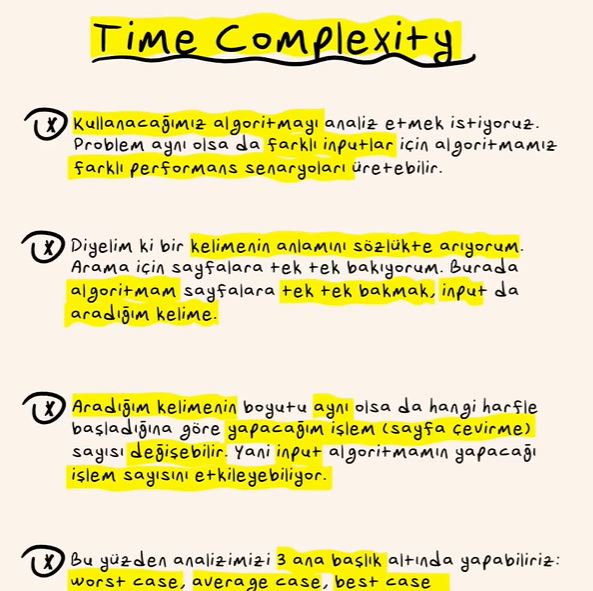 Time Complexity
Kullanacağımız algoritmayı analiz etmek istiyoruz.
Problem aynı olsa da farklı inputlar için algoritmamız
farklı performans senaryoları üretebilir.
Diyelim ki bir kelimenin anlamını sözlükte arıyorum.
Arama için sayfalara tek tek bakıyorum. Burada
algoritmam sayfalara tek tek bakmak, input da
aradığım kelime.
Aradığım kelimenin boyutu aynı olsa da hangi harfle
başladığına göre yapacağım işlem (sayfa çevirme)
sayısı değişebilir. Yani input algoritmamın yapacağı
işlem sayısını etkileyebiliyor.
Bu yüzden analizimizi 3 ana başlık altında yapabiliriz:
worst case, average case, best case